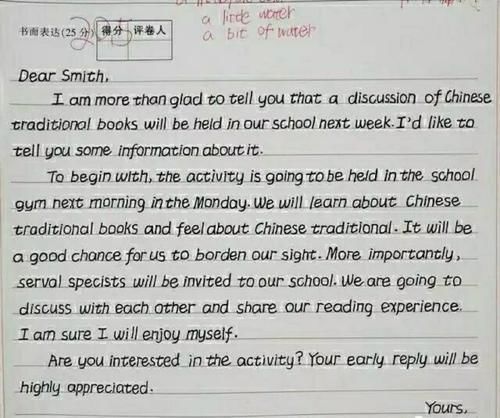 a little water
书面表达(25分) 得分 评卷人
a bit of water
Dear Smith,
I am more than glad to tell you that a discussion of Chinese
traditional books will be held in our school next week. I'd like to
tell you some information about it.
To begin with, the activity is going to be held in the school
gym next morning in the Monday. We will learn about Chinese
traditional books and feel about Chinese traditional. It will be
a good chance for us to borden our sight. More importantly,
serval specists will be invited to our school. We are going to
discuss with each other and share our reading experience.
I am sure I will enjoy myself.
Are you interested in the activity? Your early reply will be
highly appreciated.
Yours,